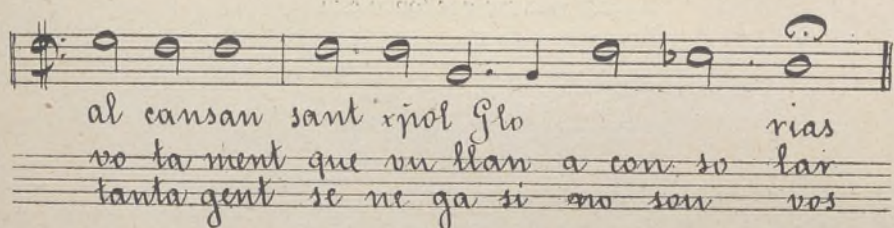 al cansan sant xpol Glo rias
vo ta ment que vu llan a con so lar
tanta gent se ne ga si no son vos